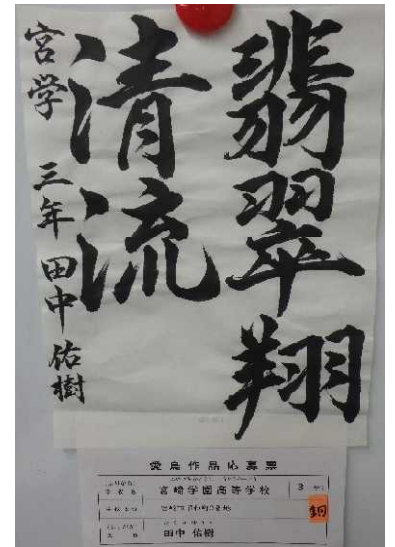 翡翠翔
清流
宮学 三年 田中佑樹
愛鳥作品応募票
宮崎学園高等学校
3
銅
田中 佑樹